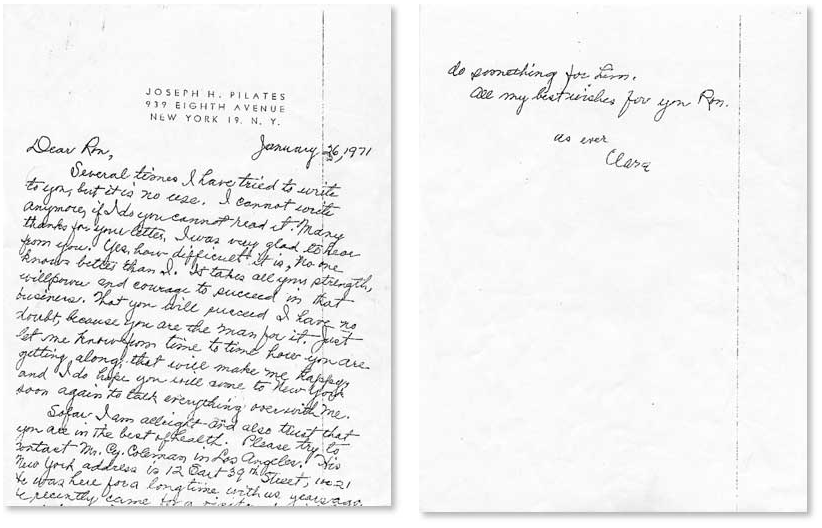 JOSEPH H. PILATES
939 EIGHTH AVENUE
NEW YORK 19, N. Y.
January 26, 1971
Dear Ron,
Several times I have tried to write
to you, but it is no use. I cannot write
anymore, if I do you cannot read it. Many
thanks for your letter, I was very glad to hear
from you. Yes, how difficult it is, no one
knows better than I. It takes all your strength,
willpower and courage to succeed in that
business. That you will succeed I have no
doubt, because you are the man for it. Just
let me know from time to time how you are
getting along, that will make me happy,
and I do hope you will come to New York
soon again to talk everything over with me.
Sofar I am allright and also trust that
you are in the best of health. Please try to
contact Mr. Cy. Coleman in Los Angeles. His
New York address is 12 East 39th Street,
He was here for a long time with us years ago
he recently came for a
do something for him.
All my best wishes for you Ron.
as ever
Clara